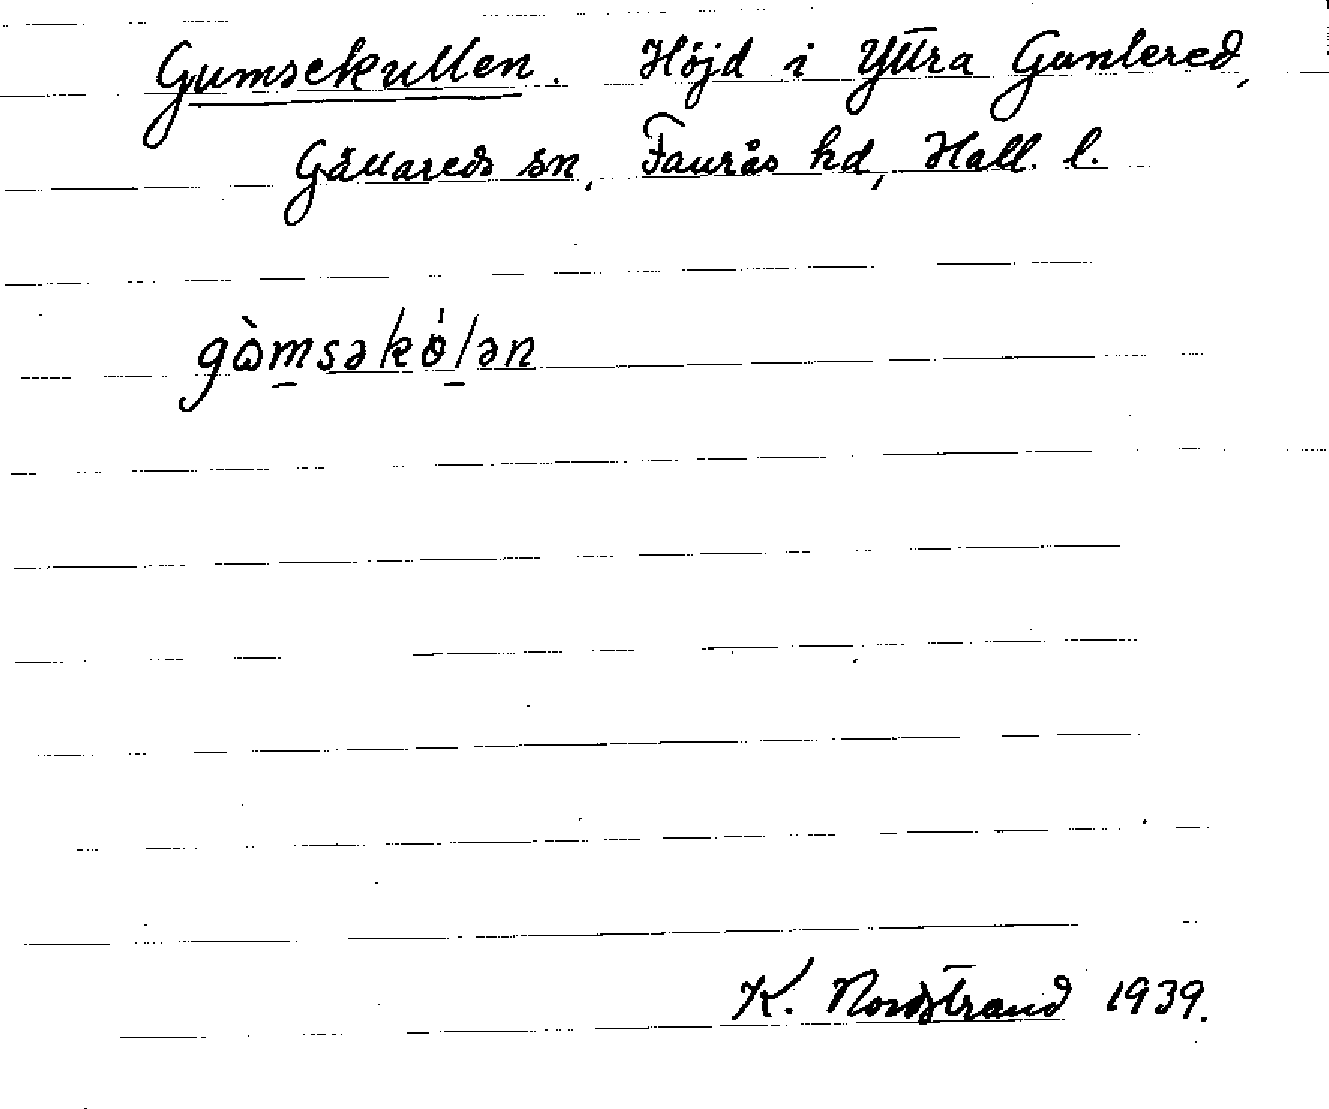 Gumsekullen. Höjd i Yttra Gunlered,
Gällareds sn, Faurås hd, Hall. l.
gɷ̀m̠səkɵ́l̠ən
K. Nordstrand 1939.